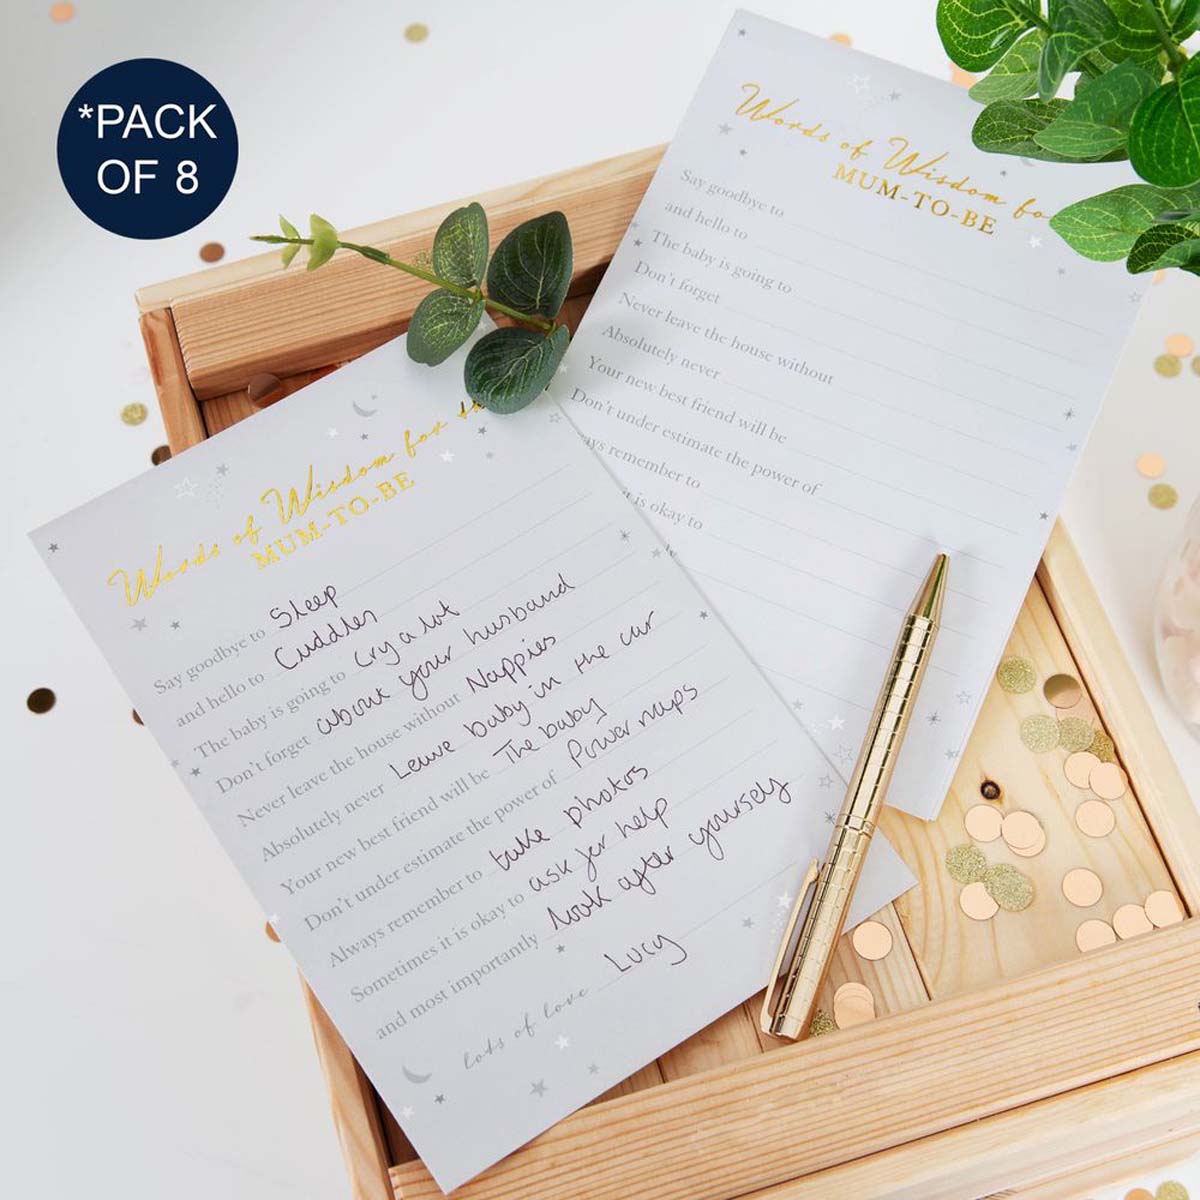 *PACK
OF 8
Words of Wisdom for the
MUM-TO-BE
Say goodbye to Sleep
and hello to Cuddles
The baby is going to cry a lot
Don't forget about your husband
Never leave the house without Nappies
Absolutely never Leave baby in the car
Your new best friend will be The baby
Don't under estimate the power of Power naps
Always remember to take photos
Sometimes it is okay to ask for help
and most importantly look after yourself
lots of love Lucy
Words of Wisdom fo
MUM-TO-BE
Say goodbye to
and hello to
The baby is going to
Don't forget
Never leave the house without
Absolutely never
Your new best friend will be
Don't under estimate the power of
ays remember to
it is okay to